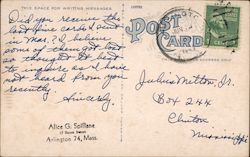 THIS SPACE FOR WRITING MESSAGES
POST
CARD
Did you receive the
last five cards I sent
in Mar.? I believe
some of them got lost
so thought I'd best
to inquire as I have
not heard from you
recently.
Sincerely,
Alice G. Spillane
Arlington 74, Mass.
Julius Melton, Jr.
Box 244
Clinton
Mississippi